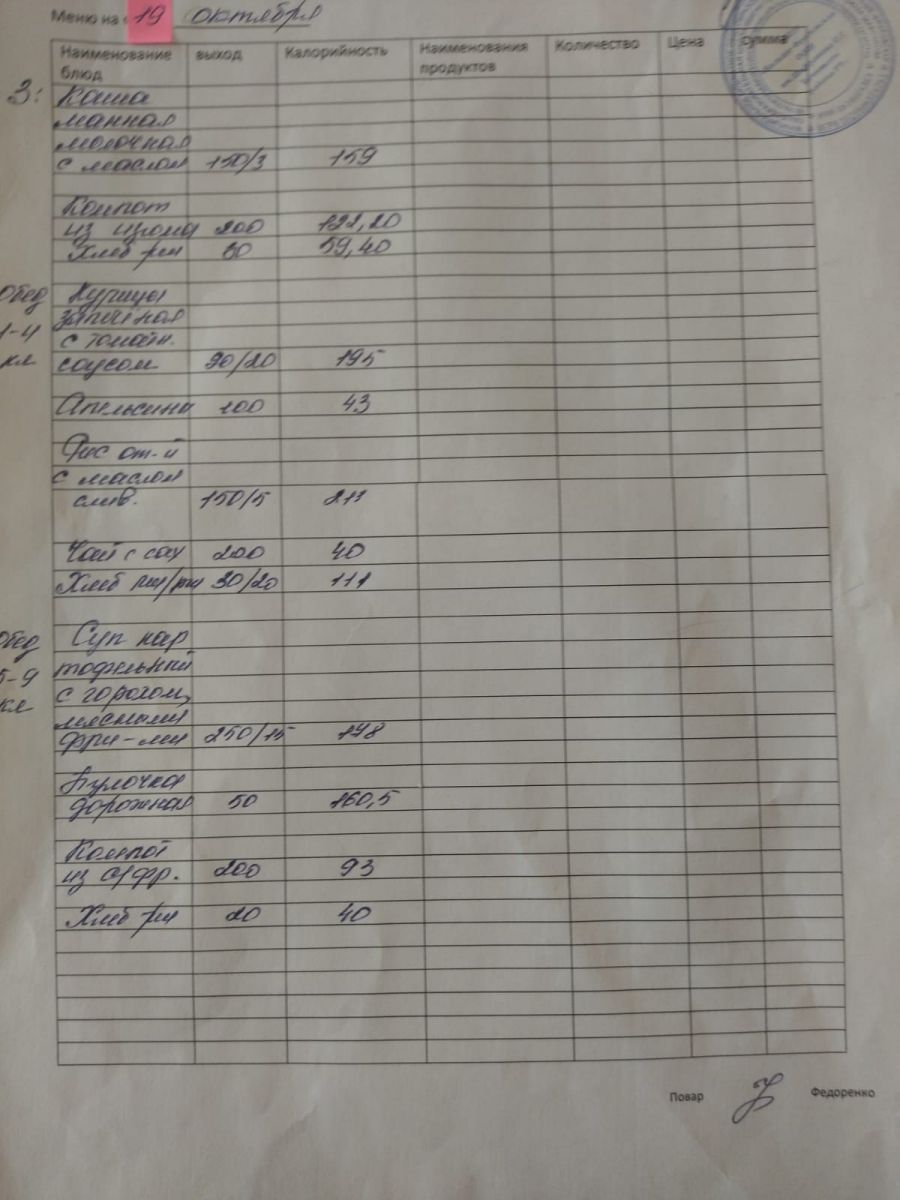 Меню на 19 октября
Наименование блюд выход Калорийность Наименования продуктов Количество Цена сумма
З: Каша
манная
молочная
с маслом 150/3 159
Компот
из изюма 200 122,20
Хлеб рж 30 59,40
Обед Курица
1-4 запечная
с томатн.
кл соусом 90/20 195
Апельсины 100 43
Рис от-й
с маслом
слив. 150/5 211
Чай с сах 200 40
Хлеб пш/рж 30/20 111
Обед Суп кар
тофельный
5-9 с горохом,
кл мясными
фри-ми 250/15 148
Булочка
дорожная 50 160,5
Компот
из с/фр. 200 93
Хлеб рж 20 40
Повар Федоренко